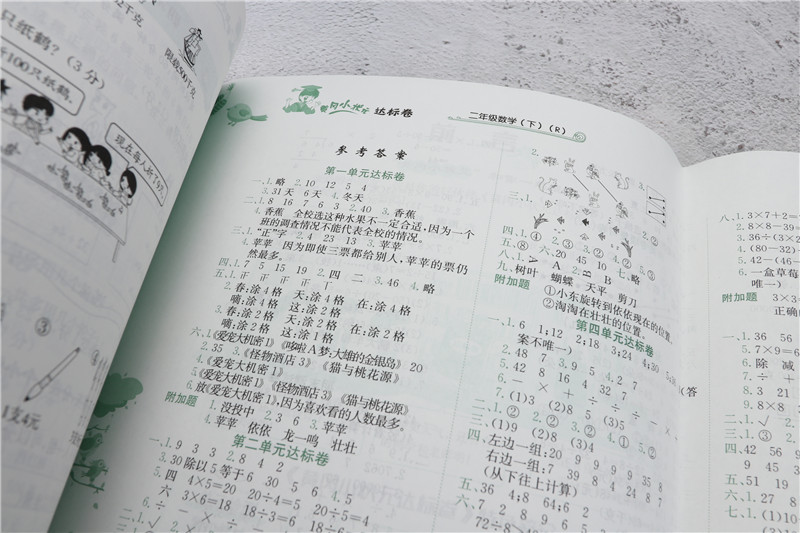 只纸鹤？（3分）
折100只纸鹤。
现在每人折了9只
限载500千克
③
④
达标卷
二年级数学（下）（R）
参考答案
第一单元达标卷
一、1.略 2.10 12 5 4
3.31天 6天 4.冬天
二、1.8 16 7 6 3 2.40 3.香蕉
4.香蕉 全校选这种水果不一定合适，因为一个
班的调查情况不能代表全校的情况。
三、1.“正”字 2.4 23 13 3.苹苹
4.苹苹 因为即使三票都给别人，苹苹的票仍
然最多。
四、1.7 5 15 19 2.四 二 3.46 4.略
五、1.正 正 正 正
2.春：涂4格 天：涂4格 在：涂4格
嘀：涂4格 这：涂2格
3.春：涂2格 天：涂2格 在：涂2格
嘀：涂2格 这：涂1格
六、1.《爱宠大机密1》《哆啦A梦：大雄的金银岛》 20
2.35 3.《怪物酒店3》《猫与桃花源》
4.《爱宠大机密1》
5.《爱宠大机密1》《怪物酒店3》《猫与桃花源》
6.放《爱宠大机密1》，因为喜欢看的人数最多。
附加题 1.没投中 2.3 6 3.苹苹
4.苹苹 依依 龙一鸣 壮壮
第二单元达标卷
一、1.9 3 3 2.8 4 2
3.30除以5等于6 30 5 6 4.5
5.四 4×5=20 20÷4=5 20÷5=4
六 3×6=18 18÷3=6 18÷6=
2.
3.
三、1.
2.②
四、1.④ 2.③ 3.② 4.② 5.③
五、⑧ 六、20 45 10 七、略
八、1. A 2. B
九、树叶 蝴蝶 天平 剪刀
附加题 ①小东旋转到依依现在的位置。
②淘淘在壮壮的位置
第四单元达标卷
一、1.6 1；12 2；18 3；24 4；30 5
案不唯一）
2.48 7 3.9 5 4.2 7
5.42 8 16 4 32 7
6.－ × ＋ ÷ ÷ － ×
7.(1)3 (2)8 5 (3)5 5
二、1.② 2.② 3.② 4.① 5.②
三、(1)9 (2)8 (3)4
四、左边一组：20 9 9 9 35 8
右边一组：7 39 8 24 8 7
（从下往上计算）
五、36 4；8 64；6 2
六、7 2 8 9 6 5
八、1.3×7＋2=
2.8×8－39=
3.36÷(3×
4.(80－32)÷
5.42－(46－
6.一盒草莓
唯一）
附加题 3×3
正确
一、1.36 56
5.7×9=6
6.除 减
7.÷ ＋
8.3 21
9.8×8
二、1.√ 2.
三、1.③ 2.
四、54 42
9 45 3
五、51 19
六、1.27 8
七、1.(1)10